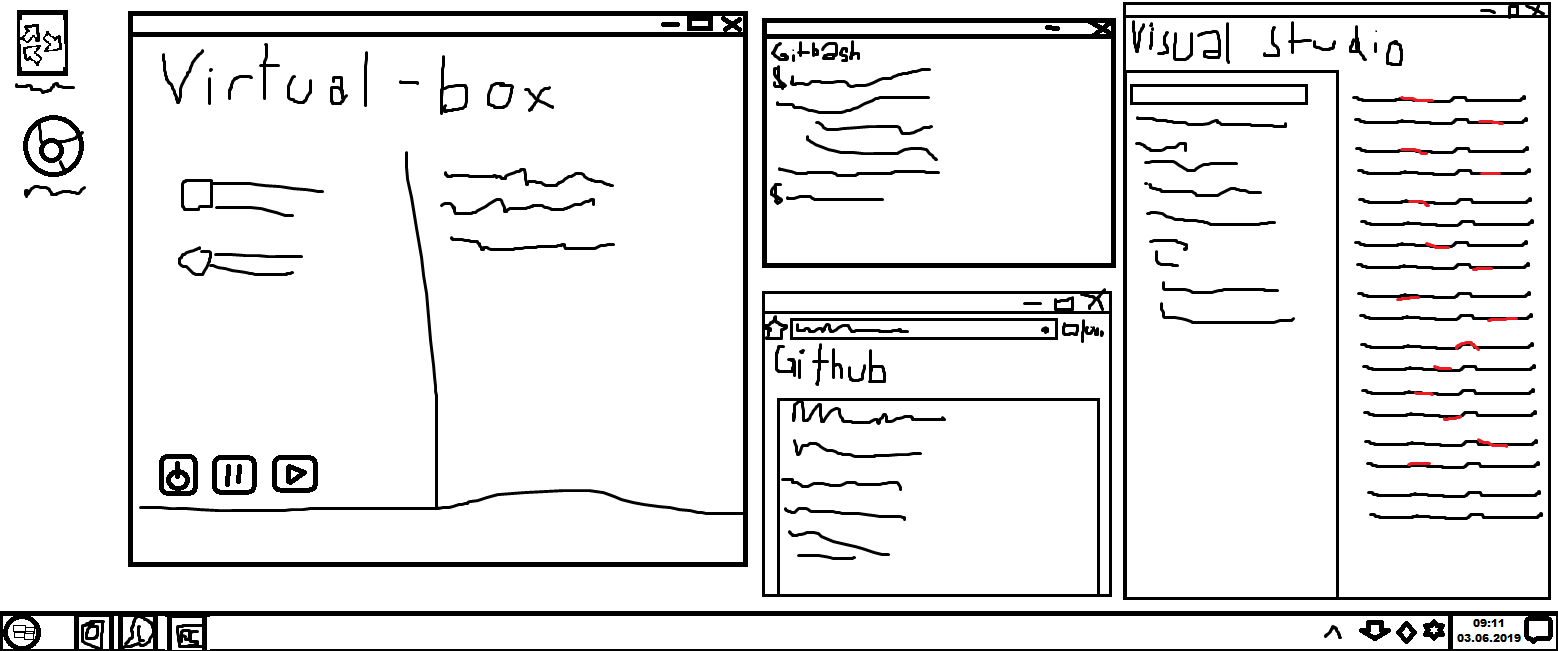 Virtual-box
Gitbash
$
$
Github
Visual Studio
09:11
03.06.2019